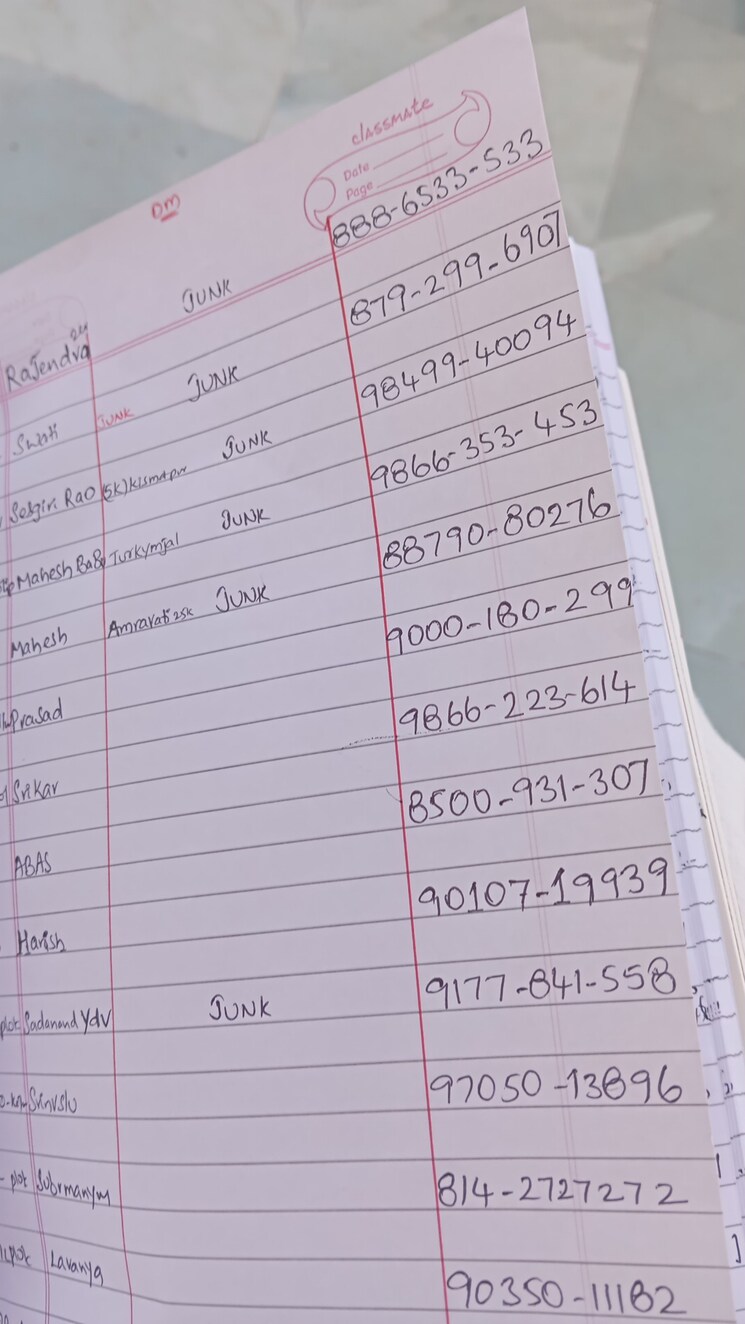 classmate
Date
Page
DM
Rajendra JUNK 888-6533-533
Swati JUNK JUNK 879-299-6907
Sesgiri Rao (5K) kismapur JUNK 98499-40094
Mahesh BaBu Turkymjal JUNK 9866-353-453
Mahesh Amravati 25k JUNK 88790-80276
Prasad 9000-180-299
Srikar 9866-223-614
ABAS 8500-931-307
Harish 90107-19939
plot Sadanand Ydv JUNK 9177-841-558
Srnvslu 97050-13896
- plot Subrmanym 814-2727272
plot Lavanya 90350-11182